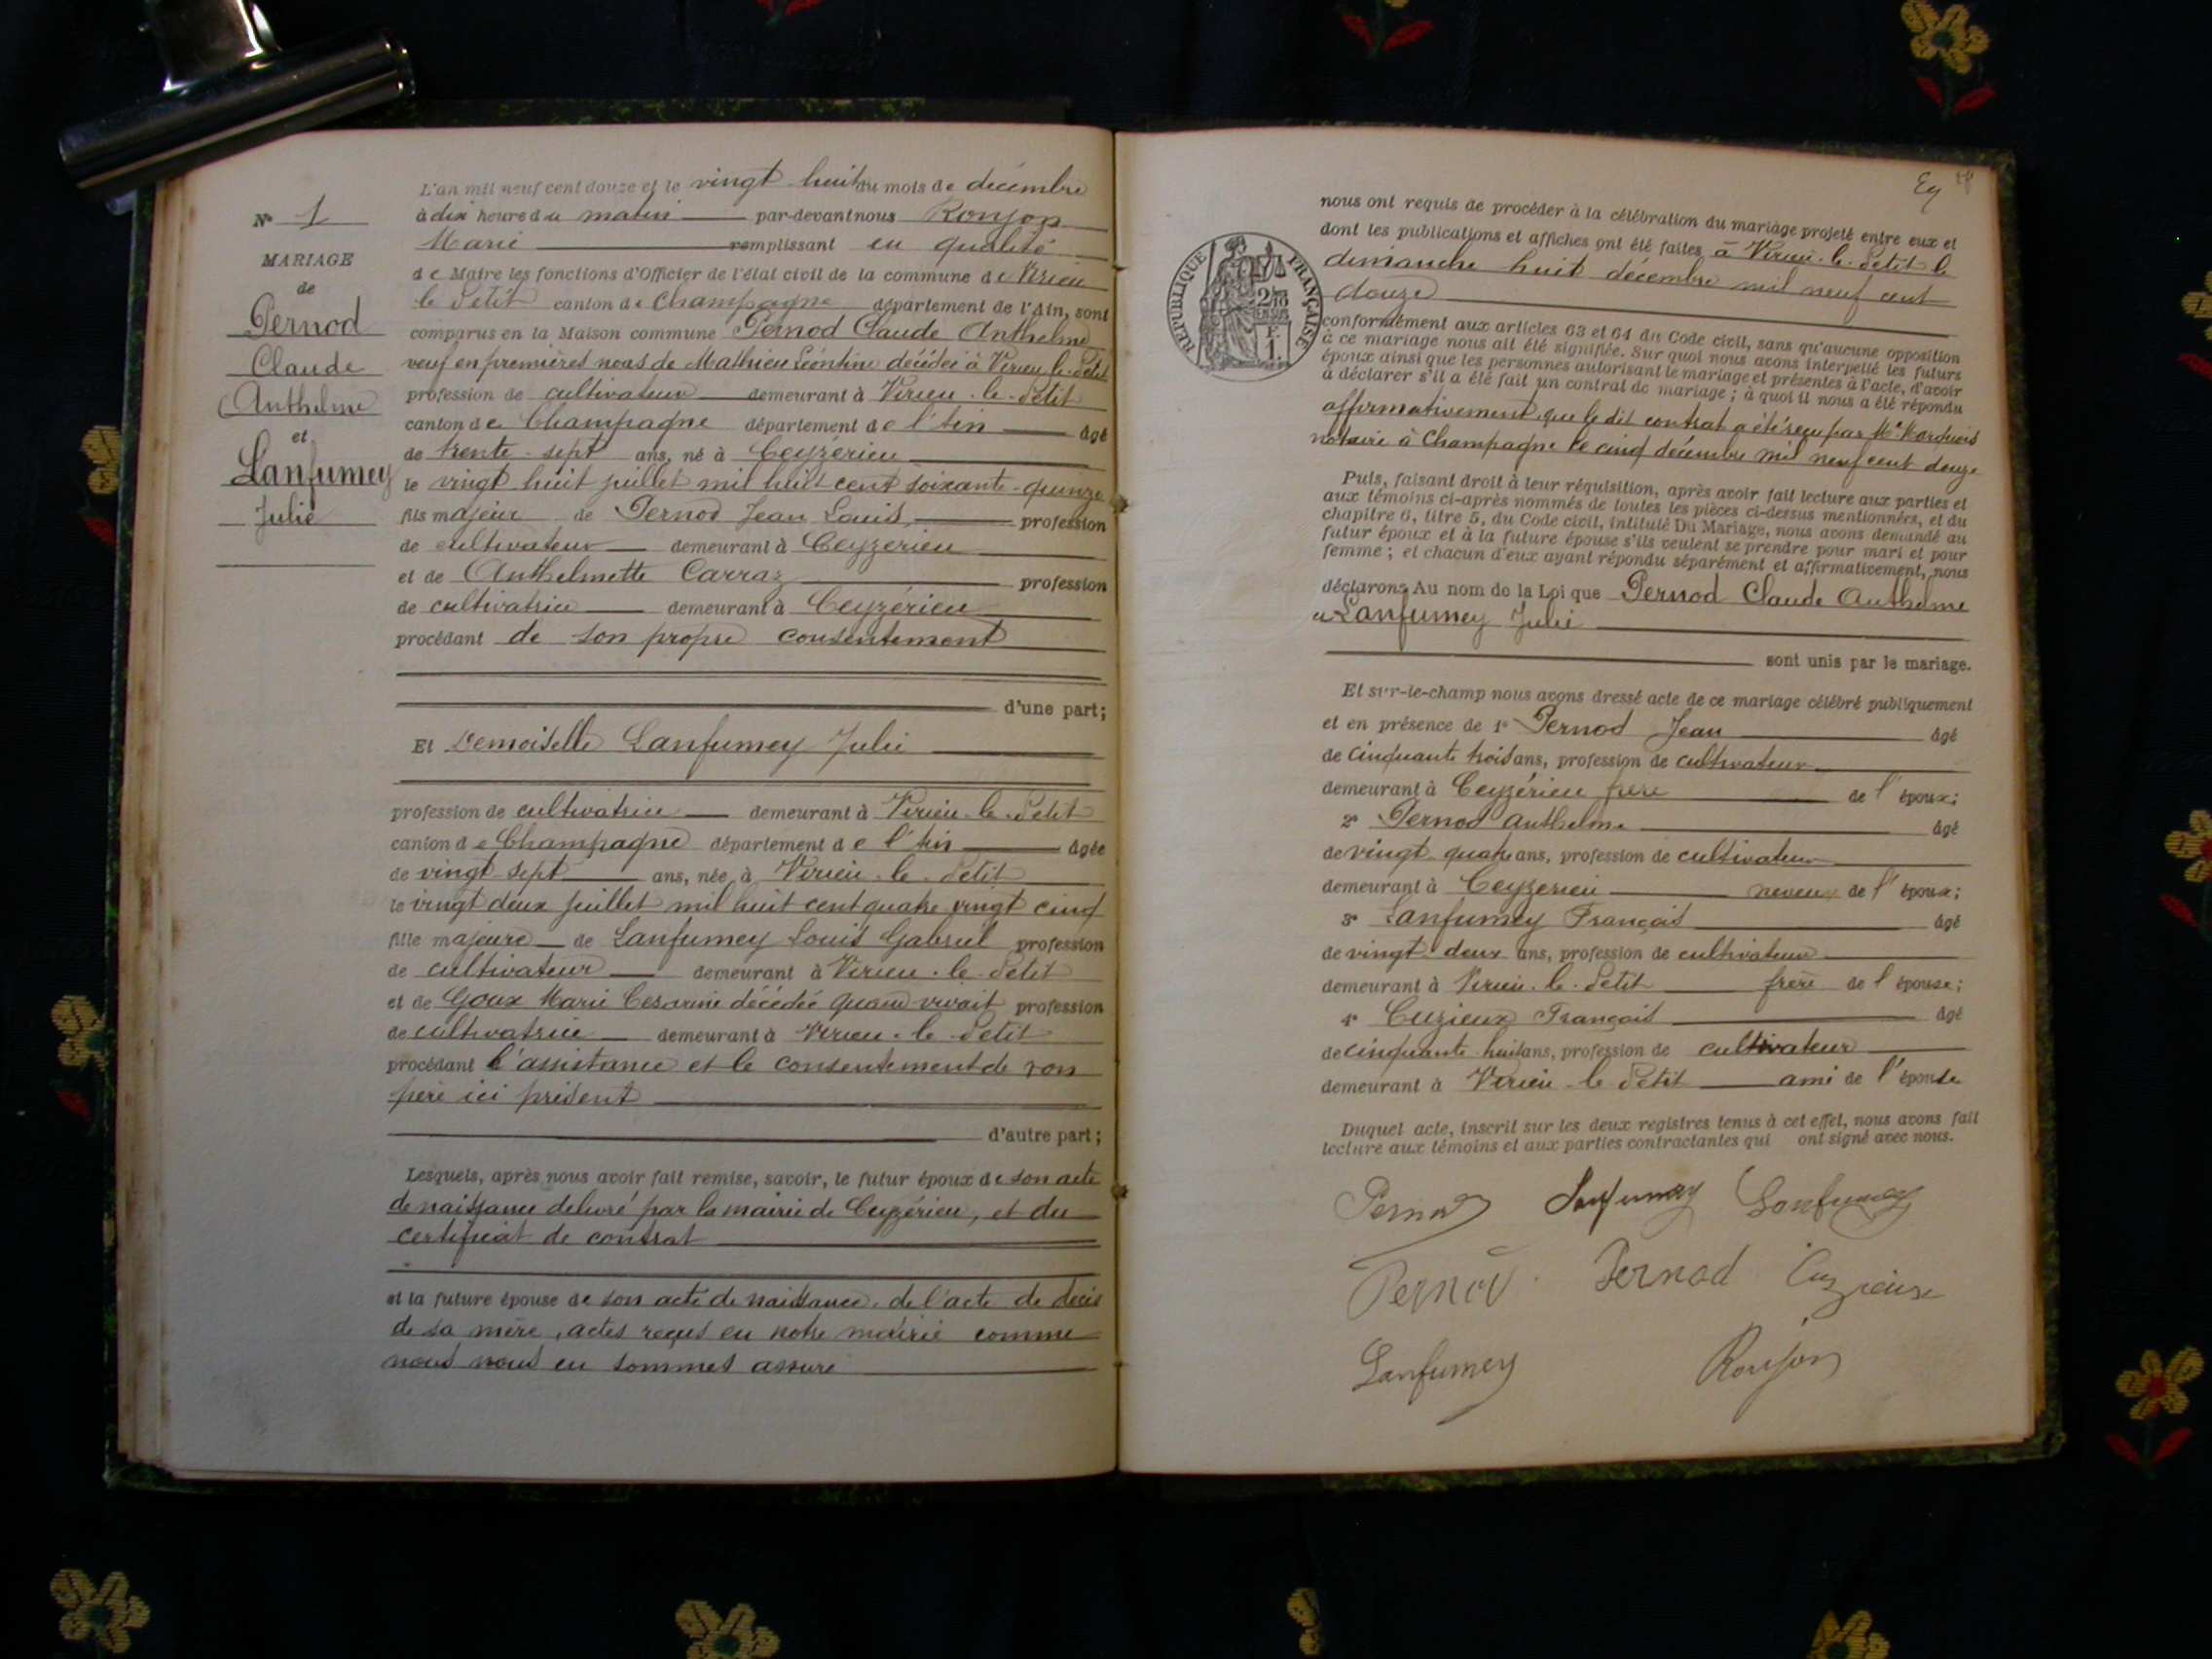 N° 1
MARIAGE
de
Pernod
Claude
Anthelme
et
Lanfumey
Julie
L'an mil neuf cent douze et le vingt huit du mois de décembre
à dix heure du matin par-devant nous Roujon
Marie remplissant en qualité
de Maire les fonctions d'Officier de l'état civil de la commune de Virieu
le Petit canton de Champagne département de l'Ain, sont
comparus en la Maison commune Pernod Claude Anthelme
veuf en premières noces de Mathieu Léontine décédée à Virieu le Petit
profession de cultivateur demeurant à Virieu-le-Petit
canton de Champagne département de l'Ain âgé
de trente-sept ans, né à Ceyzérieu
le vingt huit juillet mil huit cent soixante-quinze
fils majeur de Pernod Jean Louis profession
de cultivateur demeurant à Ceyzerieu
et de Anthelmette Carraz profession
de cultivatrice demeurant à Ceyzérieu
procédant de son propre consentement
d'une part;
Et Demoiselle Lanfumey Julie
profession de cultivatrice demeurant à Virieu-le-Petit
canton de Champagne département de l'Ain âgée
de vingt sept ans, née à Virieu-le-Petit
le vingt deux juillet mil huit cent quatre vingt cinq
fille majeure de Lanfumey Louis Gabriel profession
de cultivateur demeurant à Virieu-le-Petit
et de Goux Marie Cesarine décédée quand vivait profession
de cultivatrice demeurant à Virieu-le-Petit
procédant l'assistance et le consentement de son
père ici présent
d'autre part;
Lesquels, après nous avoir fait remise, savoir, le futur époux de son acte
de naissance delivré par la mairie de Ceyzérieu, et du
certificat de contrat
et la future épouse de son acte de naissance, de l'acte de décès
de sa mère, actes reçus en notre mairie comme
nous nous en sommes assuré
nous ont requis de procéder à la célébration du mariage projeté entre eux et
dont les publications et affiches ont été faites à Virieu-le-Petit le
dimanche huit décembre mil neuf cent
douze
RÉPUBLIQUE FRANÇAISE
conformément aux articles 63 et 64 du Code civil, sans qu'aucune opposition
à ce mariage nous ait été signifiée. Sur quoi nous avons interpellé les futurs
époux ainsi que les personnes autorisant le mariage et présentes à l'acte, d'avoir
à déclarer s'il a été fait un contrat de mariage; à quoi il nous a été répondu
affirmativement que le dit contrat a été reçu par Me
notaire à Champagne le cinq décembre mil neuf cent douze
Puis, faisant droit à leur réquisition, après avoir fait lecture aux parties et
aux témoins ci-après nommés de toutes les pièces ci-dessus mentionnées, et du
chapitre 6, titre 5, du Code civil, intitulé Du Mariage, nous avons demandé au
futur époux et à la future épouse s'ils veulent se prendre pour mari et pour
femme; et chacun d'eux ayant répondu séparément et affirmativement, nous
déclarons Au nom de la Loi que Pernod Claude Anthelme
et Lanfumey Julie
sont unis par le mariage.
Et sur-le-champ nous avons dressé acte de ce mariage célébré publiquement
et en présence de 1° Pernod Jean âgé
de cinquante trois ans, profession de cultivateur
demeurant à Ceyzérieu frère de l'époux;
2° Pernod Anthelme âgé
de vingt quatre ans, profession de cultivateur
demeurant à Ceyzerieu neveu de l'époux;
3° Lanfumey Français âgé
de vingt-deux ans, profession de cultivateur
demeurant à Virieu-le-Petit frère de l'épouse;
4° Cuzieux Français âgé
de cinquante-huit ans, profession de cultivateur
demeurant à Virieu-le-Petit ami de l'épouse
Duquel acte, inscrit sur les deux registres tenus à cet effet, nous avons fait
lecture aux témoins et aux parties contractantes qui ont signé avec nous.
Pernod Lanfumey Lanfumey
Pernod Pernod Cuzieux
Lanfumey Roujon